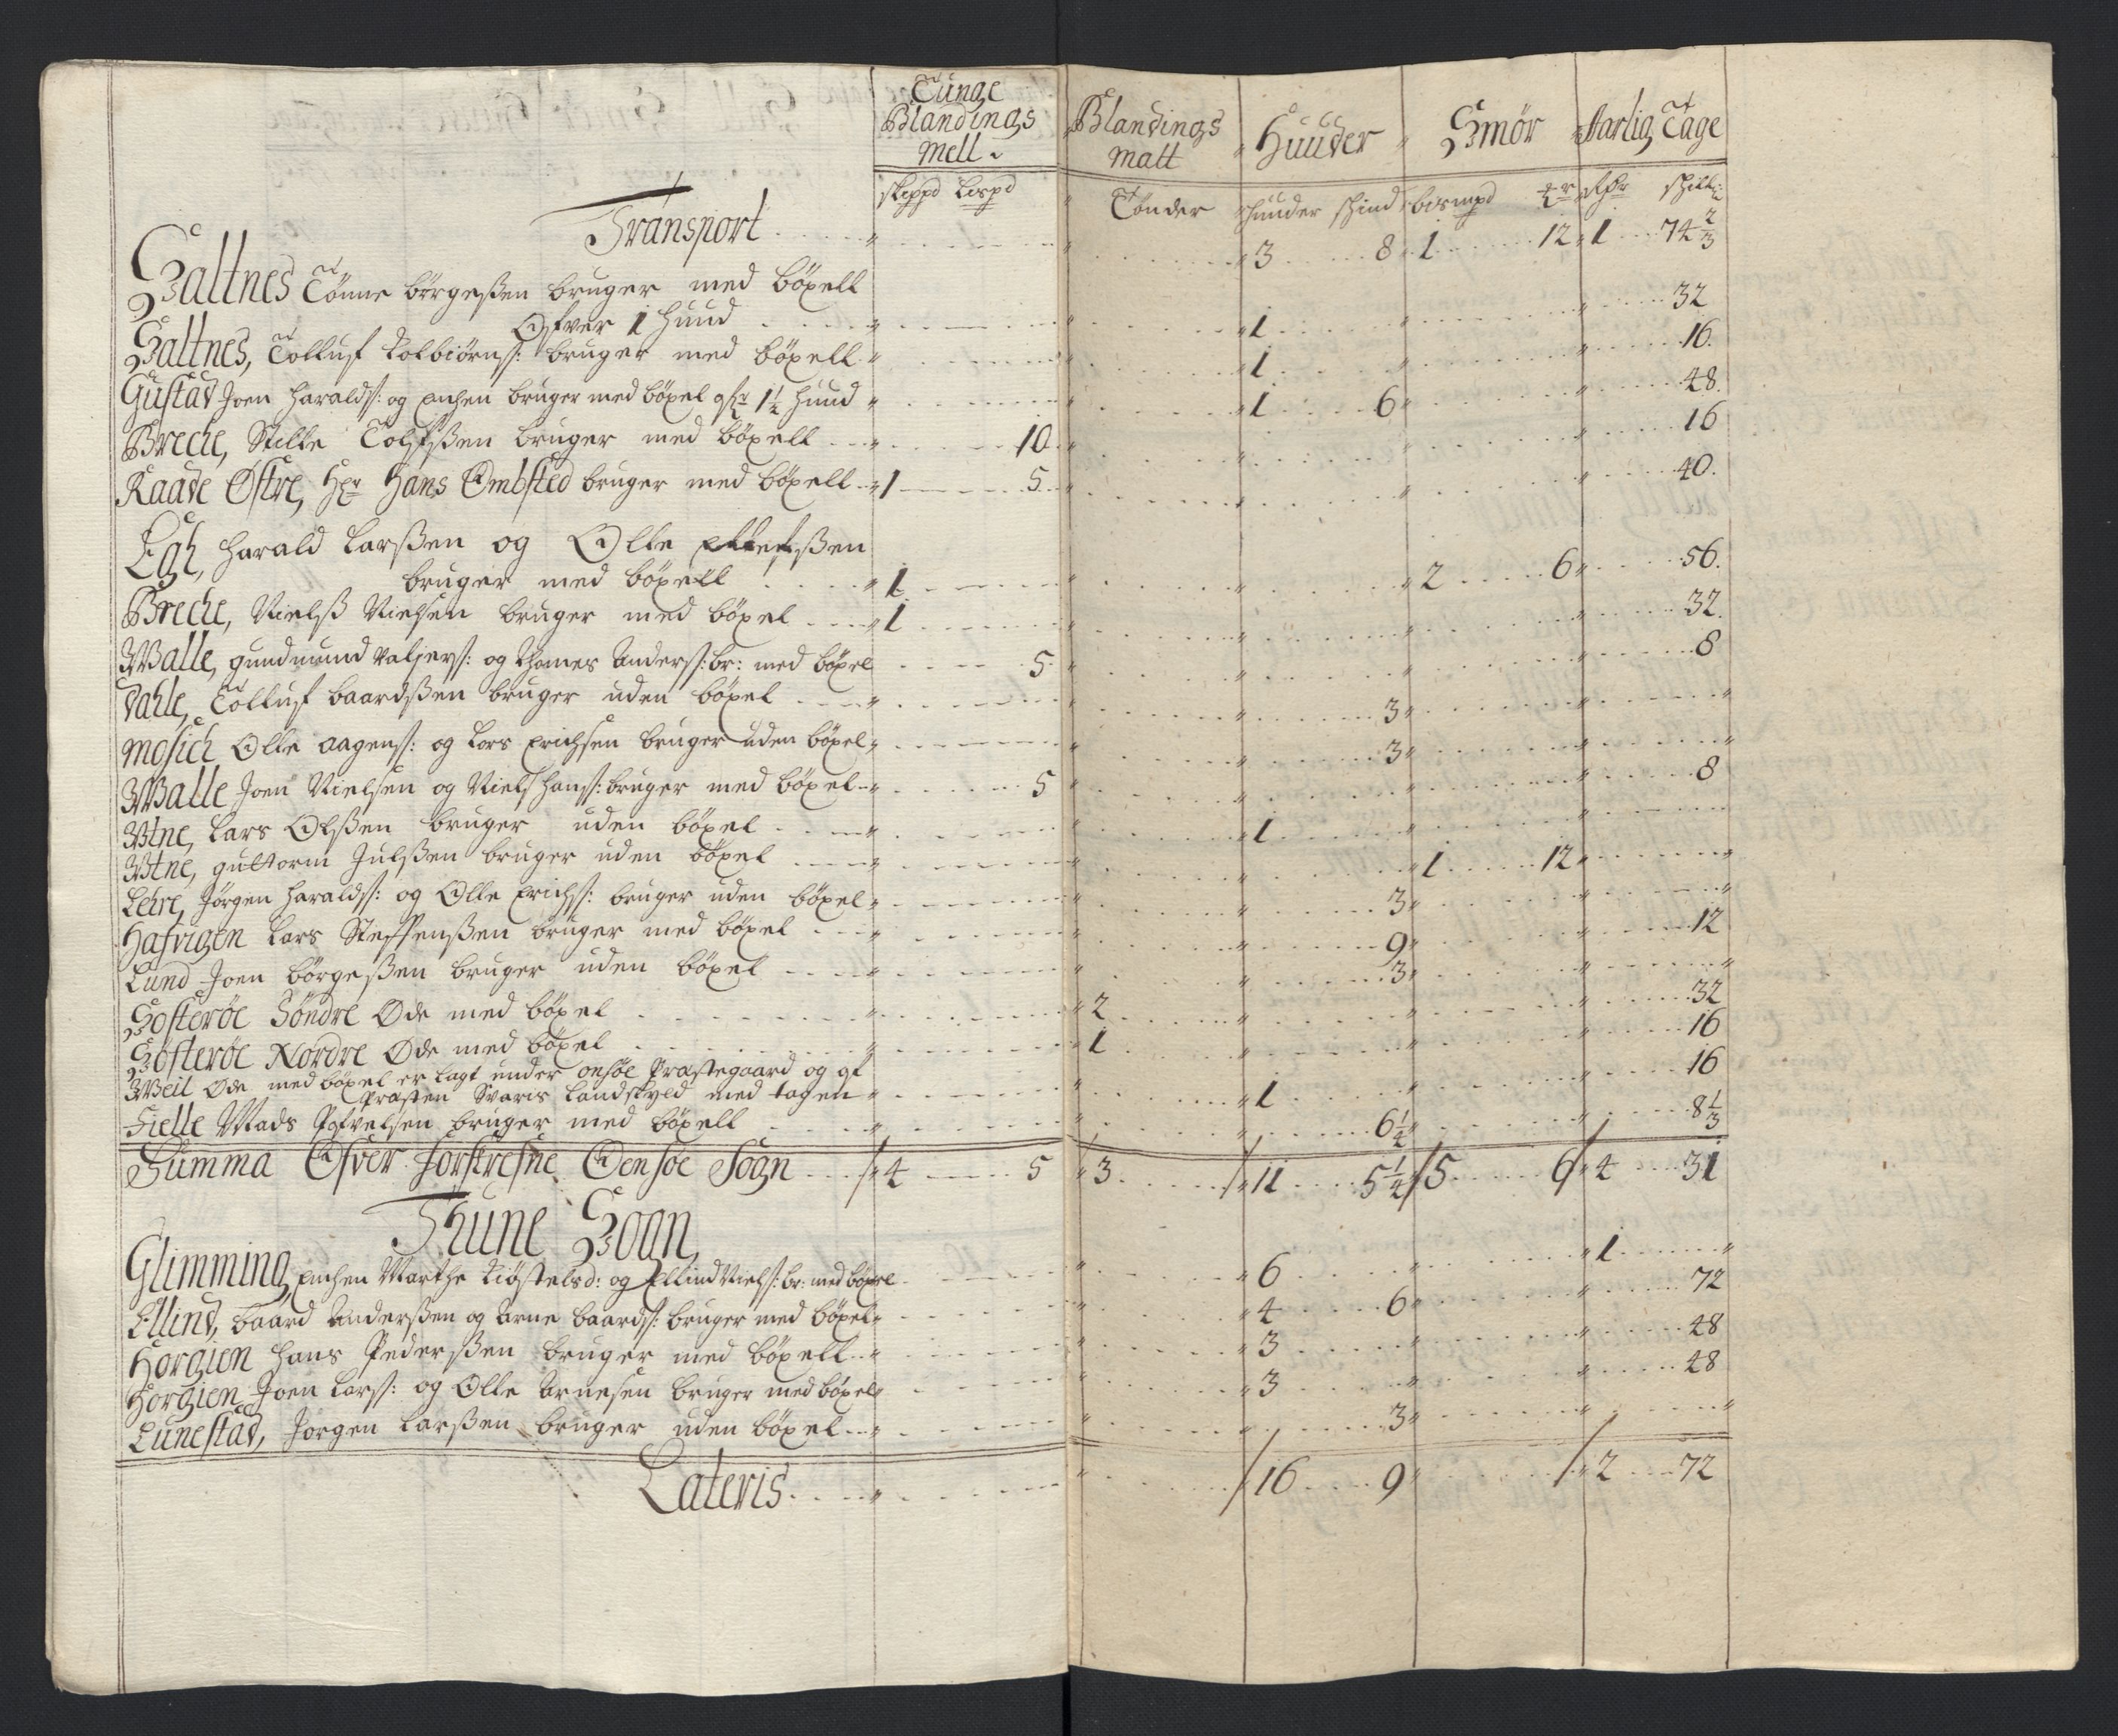 Tunge Blandings Mell. | Blandings Malt | Huuder | Smør | Aarlig Tage
skippd Lispd | Tønder | huuder skind | bismpd | Rdr skill:
Transport | 3 8 | 1 12 | 1 74 2/3
Saltnes Tønne børgeßen bruger med böxell
Ofver 1 huud | 1 | 32
Saltnes, Tolluf Tolbiörnß: bruger med böxell | 1 | 16.
Gustad Joen Haraldß: og enchen bruger med böxel ofr 1½ huud | 1 6 | 48.
Breche, Stille Tolfßen bruger med böxell | 10 | 16
Raade Østre, Hr Hans Ombsted bruger med böxell | 1 5 | 40.
Egh, Harald Larßen og Olle
bruger med böxell | 1 | 2 6 | 56.
Breche, Nielß Nielsen bruger med böxel | 1 | 32.
Walle, gundmund Valfers: og Thomes Anderß: br: med böxel | 5 | 8
Dahle, Tolluf baardßen bruger uden böxel | 3
Mosich Olle Aagenß: og Lars Erichsen bruger uden böxel | 3
Walle Joen Nielsen og Niels Hanß: bruger med böxel | 5 | 8
Utne, Lars Olßen bruger uden böxel | 1
Utne, guttorm Julßen bruger uden böxel | 1 12
Lehre, Jørgen Haraldß: og Olle Erichß: bruger uden böxel | 3
Hafvigen Lars Steffenßen bruger med böxel | 9 | 12
Lund Joen börgeßen bruger uden böxel | 3
Sosterøe Söndre Øde med böxel | 2 | 32
Sösterøe Nordre Øde med böxel | 1 | 16
Weil Øde med böxel er lagt under onsøe Præstegaard og af
Præsten Svaris Landskyld med tagen | 1 | 16
Fielle Mads Pofvelsen bruger med böxell | 6¼ | 8⅓
Summa Ofver forskrefne Oensøe Sogn | 4 5 | 3 | 11 5¼ | 5 6 | 4 31
Thune Sogn,
Glimming, enchen Marthe Kiøstelsd: og Ellind Nielß: br: med böxel | 6 | 1
Ellind, baard Anderßen og Arne baardß: bruger med böxel | 4 6 | 72
Horgien Hans Pederßen bruger med böxell | 3 | 48
Horgien Joen Larß: og Olle Arnesen bruger med böxel | 3 | 48
Lunestad, Jorgen Larßen bruger uden böxel | 3
Lateris | 16 9 | 2 72